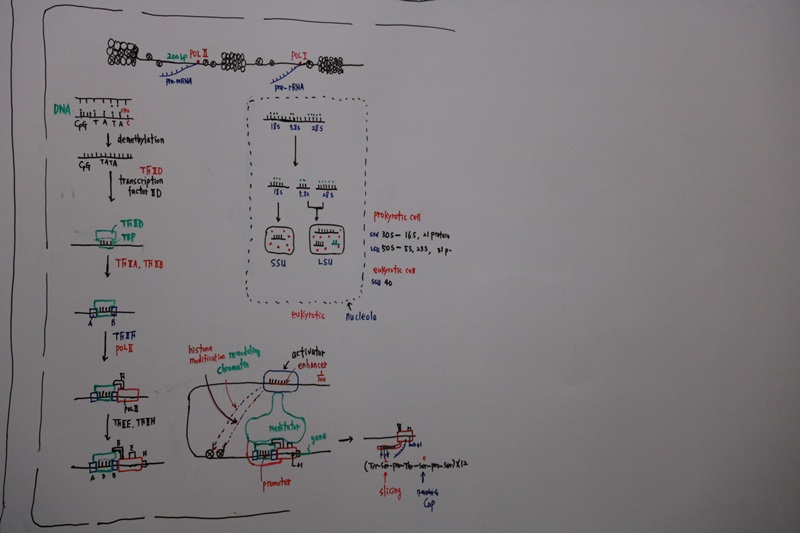 200bp POL II
POL I
pre-mRNA
pre-rRNA
DNA
CpG T A T A C
demethylation
CpG TATA
TFIID
transcription
factor IID
TFIID
TBP
TFIIA, TFIIB
A B
TFIIF
POL II
F
POL II
TFIIE, TFIIH
A D B E H
18S 5.8S 28S
18S 5.8S 28S
SSU LSU
eukyrotic
nucleola
prokyrotic cell
SSU 30S - 16S, 21 protein
LSU 50S - 5S, 23S, 31 p-
eukyrotic cell
SSU 40
histone
modification
remodeling
chromatin
activator
enhancer
meditator
gene
+1
promoter
+1
(Tyr-ser-pro-Thr-ser-pro-ser)x12
slicing
Cap